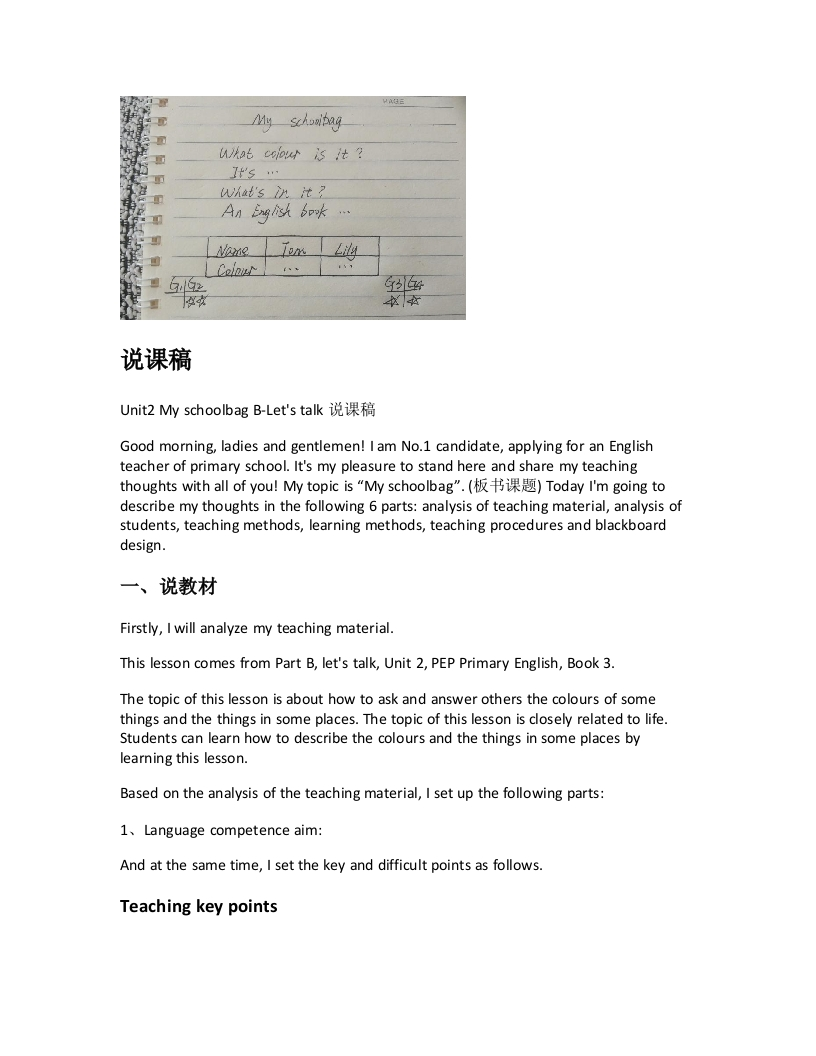 PAGE
My schoolbag
What colour is it ?
It's ...
What's in it ?
An English book ...
Name Tom Lily
Colour ... ...
G1 G2
G3 G4
说课稿
Unit2 My schoolbag B-Let's talk 说课稿
Good morning, ladies and gentlemen! I am No.1 candidate, applying for an English
teacher of primary school. It's my pleasure to stand here and share my teaching
thoughts with all of you! My topic is “My schoolbag”. (板书课题) Today I'm going to
describe my thoughts in the following 6 parts: analysis of teaching material, analysis of
students, teaching methods, learning methods, teaching procedures and blackboard
design.
一、说教材
Firstly, I will analyze my teaching material.
This lesson comes from Part B, let's talk, Unit 2, PEP Primary English, Book 3.
The topic of this lesson is about how to ask and answer others the colours of some
things and the things in some places. The topic of this lesson is closely related to life.
Students can learn how to describe the colours and the things in some places by
learning this lesson.
Based on the analysis of the teaching material, I set up the following parts:
1、Language competence aim:
And at the same time, I set the key and difficult points as follows.
Teaching key points